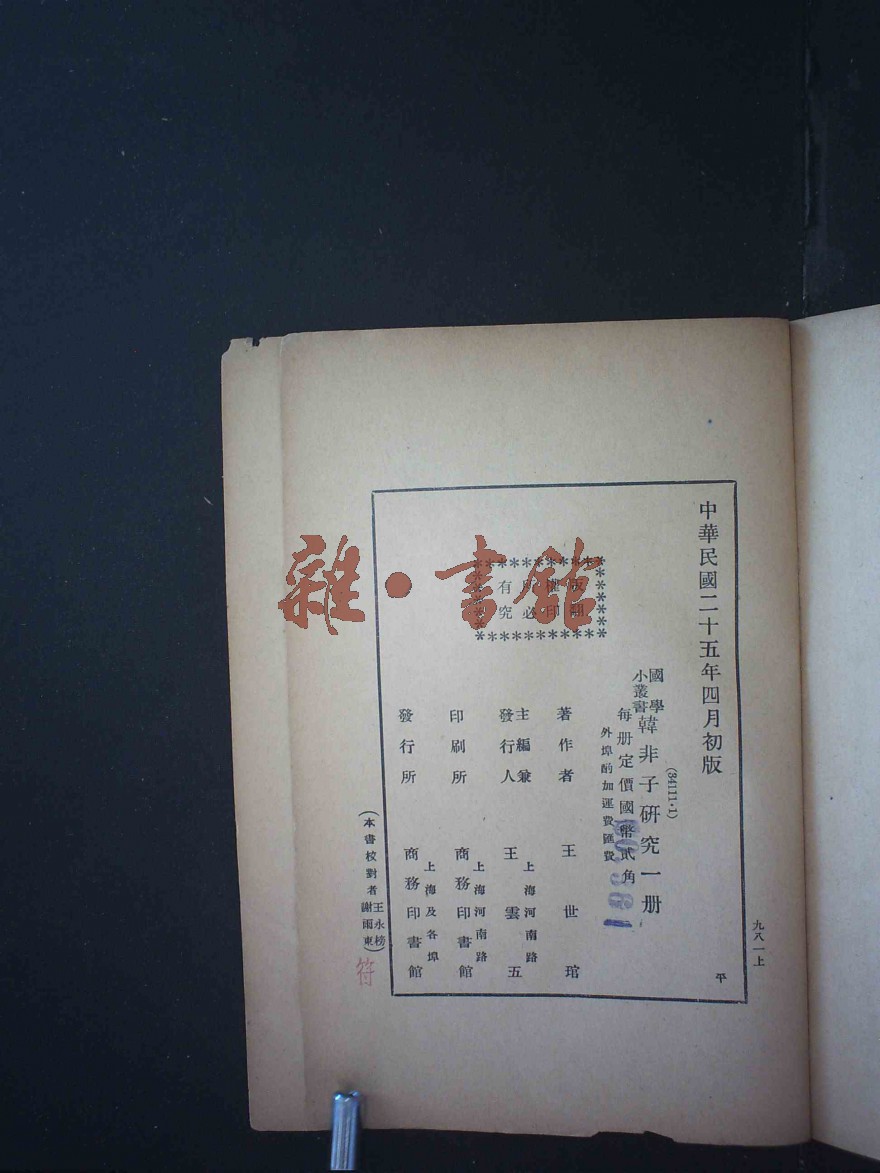 中華民國二十五年四月初版
(34111·1)
國學
小叢書
韓非子研究一册
每册定價國幣貳角
外埠酌加運費匯費
版權所有
翻印必究
著作者 王世琯
主編兼
發行人
上海河南路
王雲五
印刷所
上海河南路
商務印書館
發行所
上海及各埠
商務印書館
(本書校對者王永榜
謝雨東)
符
九八一上
平
雜·書館